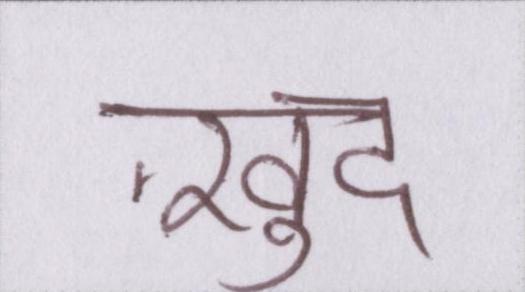 खुद